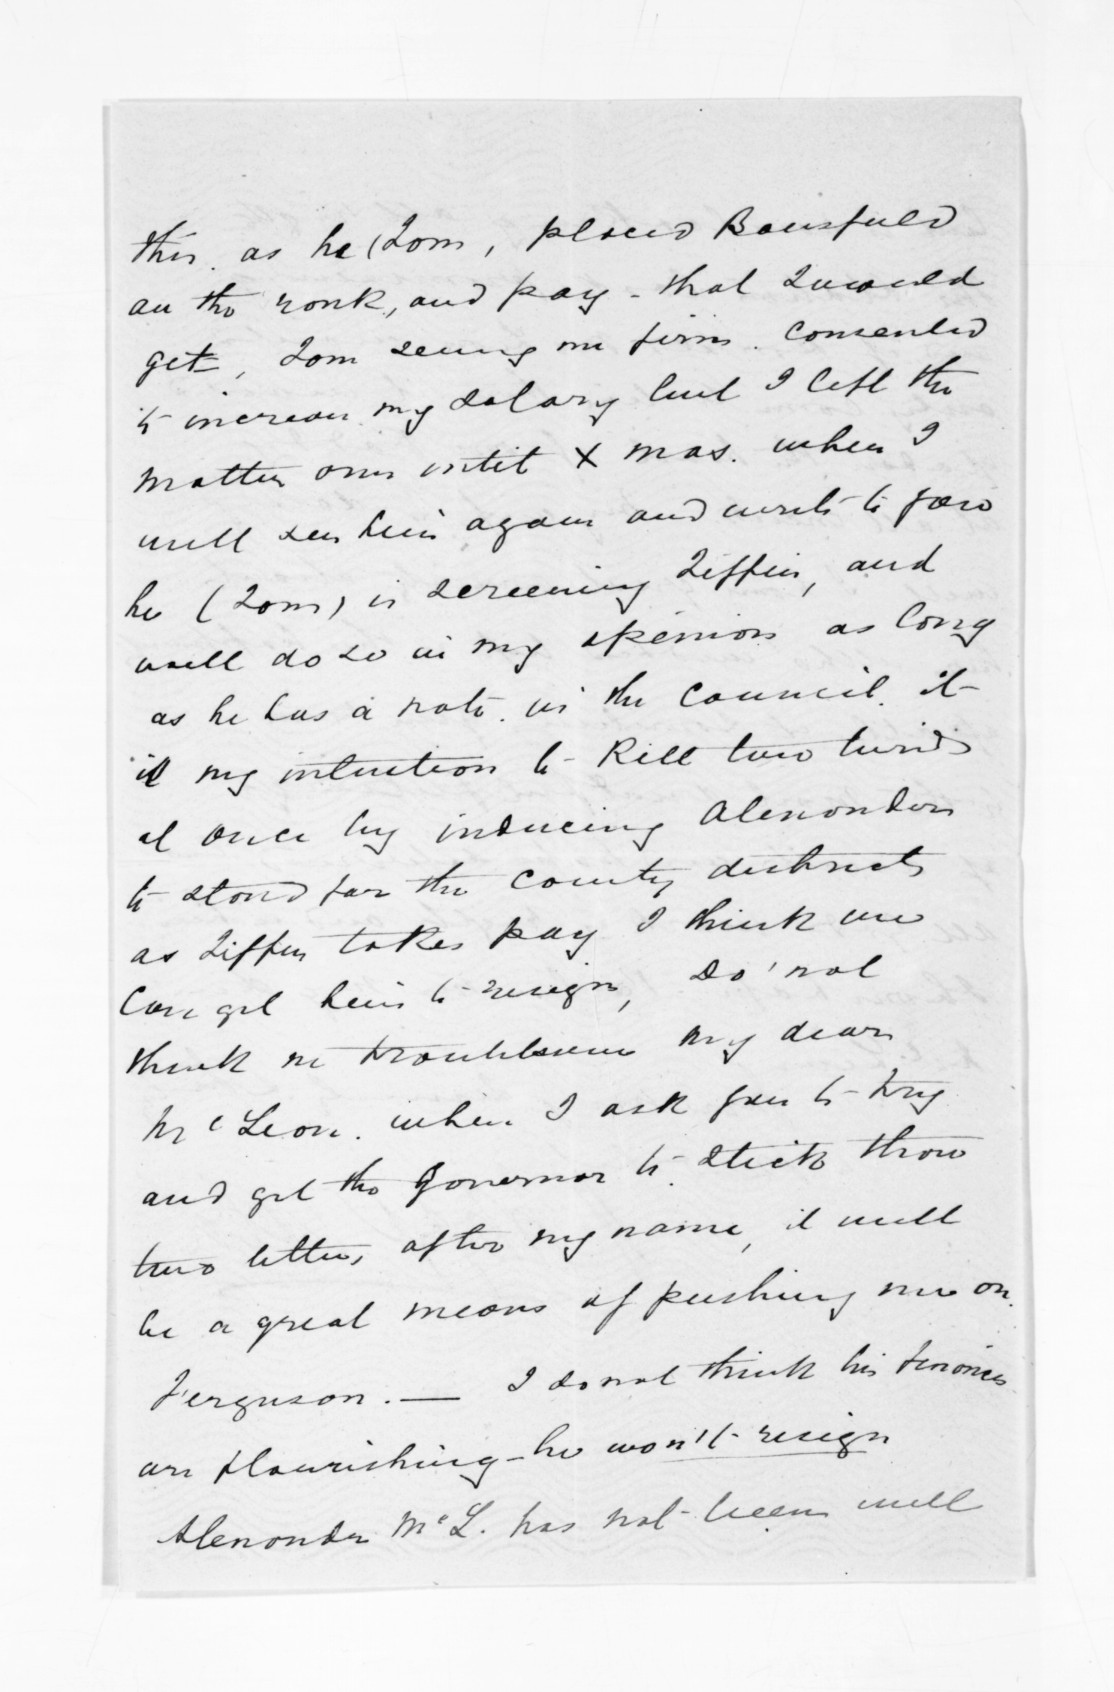 this. as he (Tom, placed Bousfield
on the rank, and pay - that I would
get, Tom seeing me firm. consented
to increase my salary but I left the
matter over until X mas. when I
will see him again and write to you
he (Tom) is screening Tiffin, and
will do so in my opinion as long
as he has a vote. in the Council. it
is my intention to Kill two birds
at once by inducing Alexander
to stand for the County districts
as Tiffin takes pay I think we
can get him to resign, do' not
think me troublesome my dear
McLean. when I ask you to try
and get the Governor to stick those
two letters after my name, it will
be a great means of pushing me on.
Ferguson. — I do not think his finances
are flourishing - he won't resign
Alexander McL. has not been well